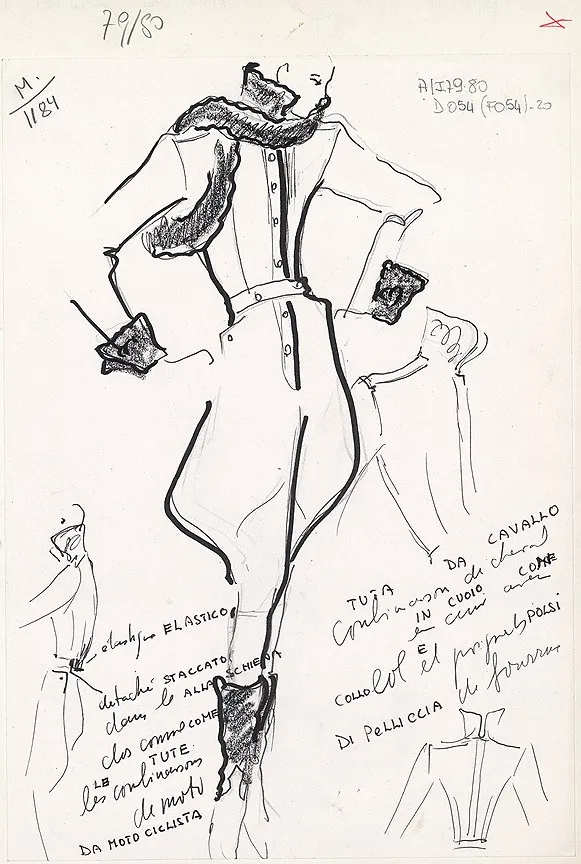 79/80
M.
1184
A/I 79.80
D.054 (FO54)-20
TUTA DA CAVALLO
combinaison de cheval
IN CUOIO COME
en cuir avec
E POLSI
COLLO col et poignets
DI PELLICCIA de fourrure
élastique ELASTICO
détaché STACCATO
dans le ALLA SCHIENA
dos comme COME
LE TUTE
les combinaisons
de moto
DA MOTOCICLISTA